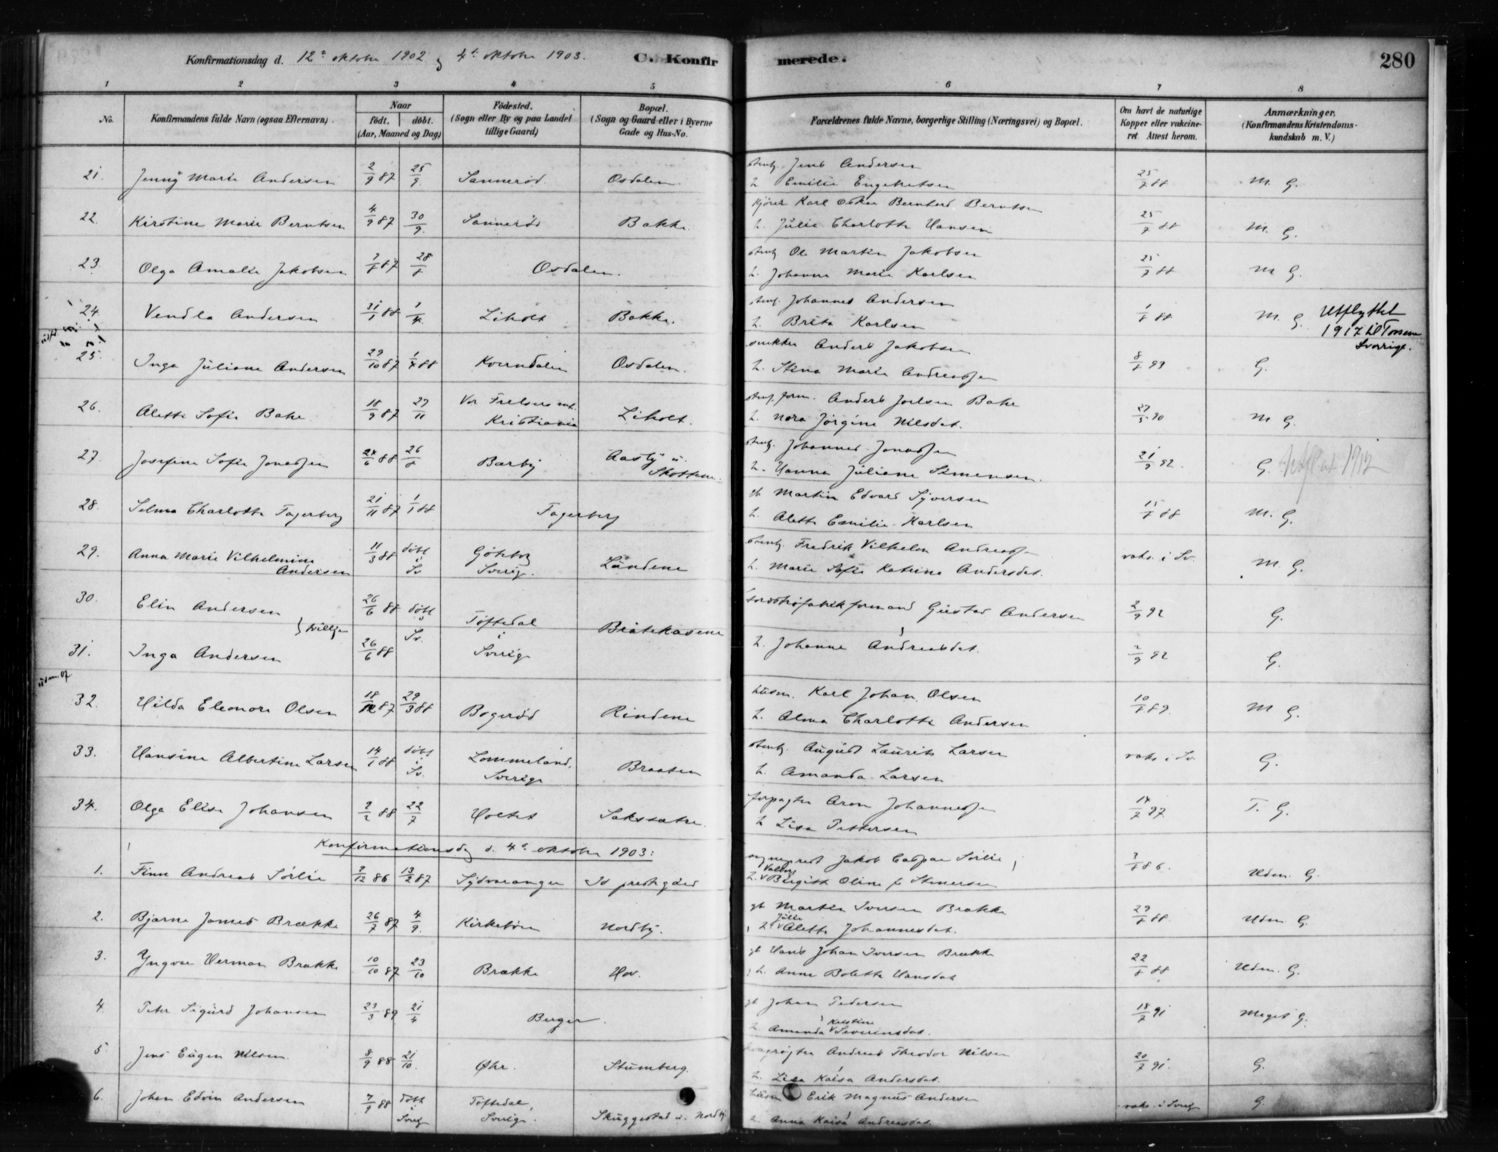 Konfirmationsdag d. 12te oktober 1902 og 4de oktober 1903. C. Konfirmerede. 280
1 2 3 4 5 6 7 8
No. Konfirmandens fulde Navn (ogsaa Efternavn). Naar født. døbt. (Aar, Maaned og Dag) Fødested. (Sogn eller By og paa Landet tillige Gaard) Bopæl. (Sogn og Gaard eller i Byerne Gade og Hus-No. Forældrenes fulde Navne, borgerlige Stilling (Næringsvei) og Bopæl. Om havt de naturlige Kopper eller vaccineret. Attest herom. Anmærkninger. (Konfirmandens Kristendomskundskab m. V.)
21. Jenny Marie Andersen 2/9 87 25/9 Sannerød Osdalen Jens Andersen
Emilie Engebretsen 25/7 88 M. G.
22 Kirstine Marie Berntsen 4/9 87 30/9. Sannerød Bakke Karl Oskar Bernhard Berntsen
Julie Charlotte Hansen 25/7 88 M. G.
23. Olga Amalie Jakobsen 87 28/8 Osdalen. Ole Martin Jakobsen
Johanne Marie Karlsen 25/7 88 M G.
24. Vendla Andersen 88 Liholt Bakke. Johannes Andersen
Brita Karlsen 88 M. G. Utflyttet
1917 til
Sverige.
25. Inga Juliane Andersen 29/10 87 88 Kverndalen Osdalen. snekker Anders Jakobsen
Stina Marie Andreassen 93 G.
26. Alette Sofie Bake 18/9 87 27/11 Vor Frelsers
Kristiania Liholt. Anders Joelsen Bake
Nora Jørgine Nilsdat. 27/5 90 M G.
27. Josefine Sofie Jonassen 88 26/8 Barby Aasby u.
Skotten. Johannes Jonassen
Hanna Juliane Simensen. 21/9 92. G. 1912
28. Selma Charlotte Fagerberg 21/11 87 88 Fagerberg Martin Edvard Syversen
Alette Emilie Karlsen 15/8 88 M. G.
29. Anna Marie Vilhelmine
Andersen 11/3 88 døbt
i
Sv Göteborg
Sverig. Låndene Fredrik Vilhelm Andreassen
Marie Sofie Katrina Andersdat. vakc. i Sv. M G.
30. Elin Andersen } tvillger 26/6 88 døbt Töftedal Gustav Andersen 2/9 92 G.
31. Inga Andersen 26/6 88 Sv. i
Sverige Johanne Andreasdat. 2/9 92 G.
32. Hilda Eleonore Olsen 18/12 87 29/3 88 Bogerød Rindene husm. Karl Johan Olsen
Alma Charlotte Andersen 10/8 89. M G.
33. Hansine Albertine Larsen 14/1 88 døbt
i
Sv. Lommeland,
Sverige Braaten August Laurits Larsen
Amanda Larsen vakc i Sv G.
34. Olga Elise Johansen 2/2 88 22/7 Holtet forpagter Aron Johannessen
Lisa Pettersen 14/7 97 T. G.
Konfirmationsdag d. 4de oktober 1903:
1. Finn Andreas Sørlie 9/12 86 13/2 87 Sydvaranger prestegård sogneprest Jakob Caspar Sørlie
Valborg
Birgitte Oline f. Simersen 86. Udm. G.
2. Bjarne James Brække 26/7 87 4/9. Kirkebøen Nordby. Martin Iversen Brække
Julie
Alette Johannesdat. 29/8 88 Udm G.
3. Yngvar Herman Brække 10/10 87 23/10 Brække Hov. Hans Johan Iversen Brække
Anne Bolette Hansdat 22/8 88 Udm. G.
4. Peter Sigurd Johansen 23/3 89 21/4 Berger. Johan Pedersen
Kristine
Amanda Severinsdat. 18/7 91 Meget G.
5 Jens Eugen Nilsen 8/9 88 21/10. Øhr. Stumberg. Andreas Theodor Nilsen
Lisa Kaisa Andersdat. 20/7 91. G.
6. Johan Edvin Andersen 7/9 88 døbt
i
Sverig Töftedal,
Sverige. Skuggestad u. Nordby husm Erik Magnus Andersen
Anna Kaisa Andreasdat. vakc. i Sverig G.